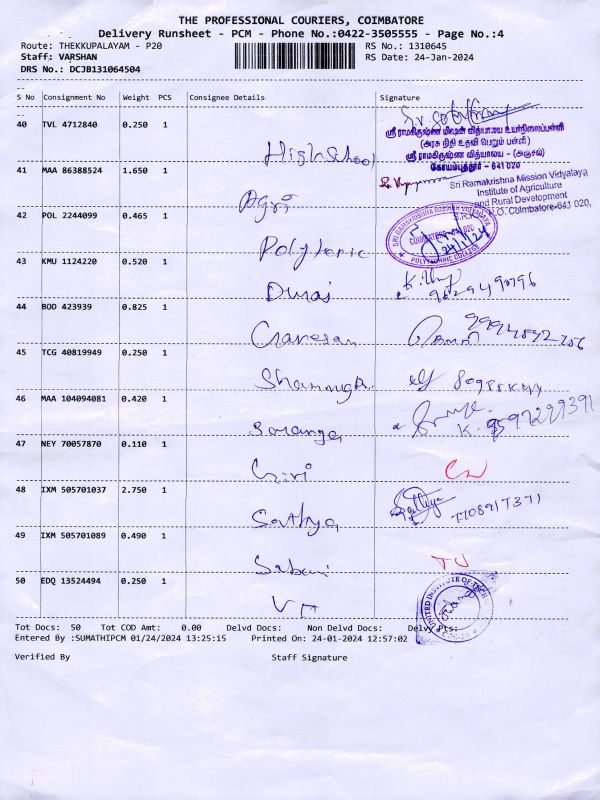 THE PROFESSIONAL COURIERS, COIMBATORE
Delivery Runsheet - PCM - Phone No.:0422-3505555 - Page No.:4
Route: THEKKUPALAYAM - P20
RS No.: 1310645
Staff: VARSHAN
RS Date: 24-Jan-2024
DRS No.: DCJB131064504
S No Consignment No Weight PCS Consignee Details Signature
40 TVL 4712840 0.250 1 High School
ஸ்ரீ ராமகிருஷ்ண மிஷன் வித்யாலய உயர்நிலைப்பள்ளி
(அரசு நிதி உதவி பெறும் பள்ளி)
ஸ்ரீ ராமகிருஷ்ண வித்யாலய - (அஞ்சல்)
கோயம்புத்தூர் - 641 020
41 MAA 86388524 1.650 1 Agri
Sri Ramakrishna Mission Vidyalaya
Institute of Agriculture
and Rural Development
Coimbatore-641 020,
42 POL 2244099 0.465 1 Polytenic
SRI RAMAKRISHNA MISSION VIDYALAYA
COIMBATORE 641 020
24/1/24
POLYTECHNIC COLLEGE
43 KMU 1124220 0.520 1 Durai
9629490796
44 BOD 423939 0.825 1 Ganesan
9994842756
45 TCG 40819949 0.250 1 Shanmuga
46 MAA 104094081 0.420 1 Saranga
K. 9597299391
47 NEY 70057870 0.110 1 Giri
48 IXM 505701037 2.750 1 Sathya
Sathya
49 IXM 505701089 0.490 1 Sabari
50 EDQ 13524494 0.250 1
UNITED INSTITUTE OF TECH
Tot Docs: 50 Tot COD Amt: 0.00 Delvd Docs: Non Delvd Docs: Delvy Pts:
Entered By :SUMATHIPCM 01/24/2024 13:25:15 Printed On: 24-01-2024 12:57:02
Verified By Staff Signature